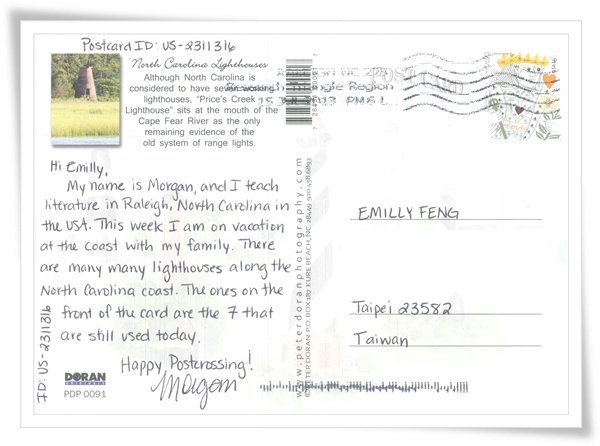 Postcard ID: US-2311316
North Carolina Lighthouses
Although North Carolina is
considered to have seven working
lighthouses, "Price's Creek
Lighthouse" sits at the mouth of the
Cape Fear River as the only
remaining evidence of the
old system of range lights.
Hi Emilly,
My name is Morgan, and I teach
literature in Raleigh, North Carolina in
the USA. This week I am on vacation
at the coast with my family. There
are many many lighthouses along the
North Carolina coast. The ones on the
front of the card are the 7 that
are still used today.
Happy Postcrossing!
Morgan
ID: US-2311316
DORAN
PDP 0091
www.peterdoranphotography.com
© PETER DORAN P.O. BOX 287 KURE BEACH, NC 28449 910.458.6893
POSTCARD
Region
2013 PM
EMILLY FENG
Taipei 23582
Taiwan